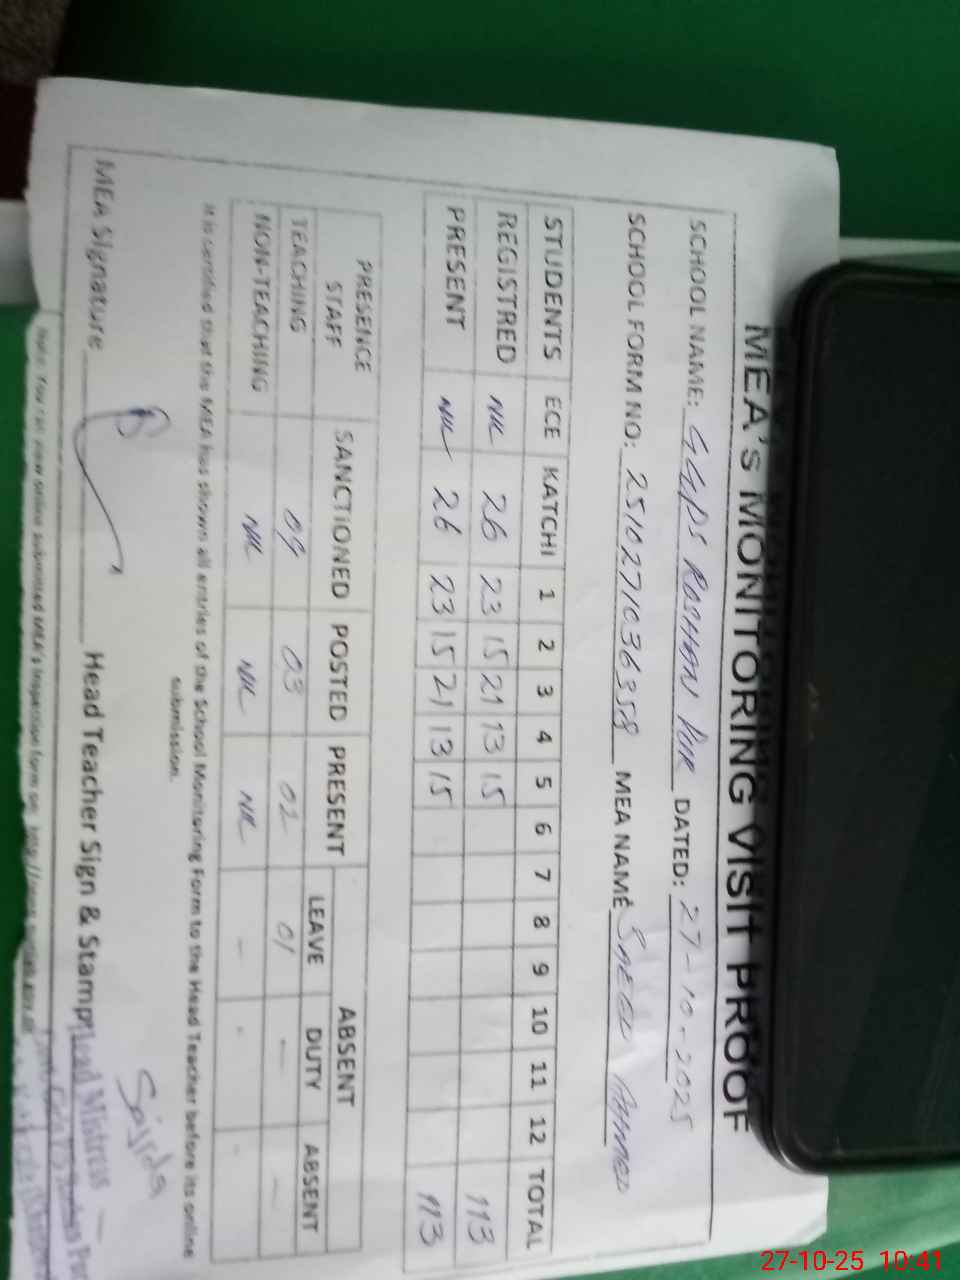 MEA's MONITORING VISIT PROOF
SCHOOL NAME: GGPS ROSHAN PUR DATED: 27-10-2025
SCHOOL FORM NO: MEA NAME SAEED AHMED
STUDENTS ECE KATCHI 1 2 3 4 5 6 7 8 9 10 11 12 TOTAL
REGISTRED NIL 26 23 15 21 13 15 113
PRESENT NIL 26 23 15 21 13 15 113
PRESENCE STAFF SANCTIONED POSTED PRESENT ABSENT
LEAVE DUTY ABSENT
TEACHING 09 03 02 01 — —
NON-TEACHING NIL NIL NIL - - -
It is certified that the MEA has shown all entries of the School Monitoring Form to the Head Teacher before its online
submission.
MEA Signature Head Teacher Sign & Stamp
Sajida
Head Mistress
Note: You can view online submitted MEA's Inspection form on http://
27-10-25 10:41